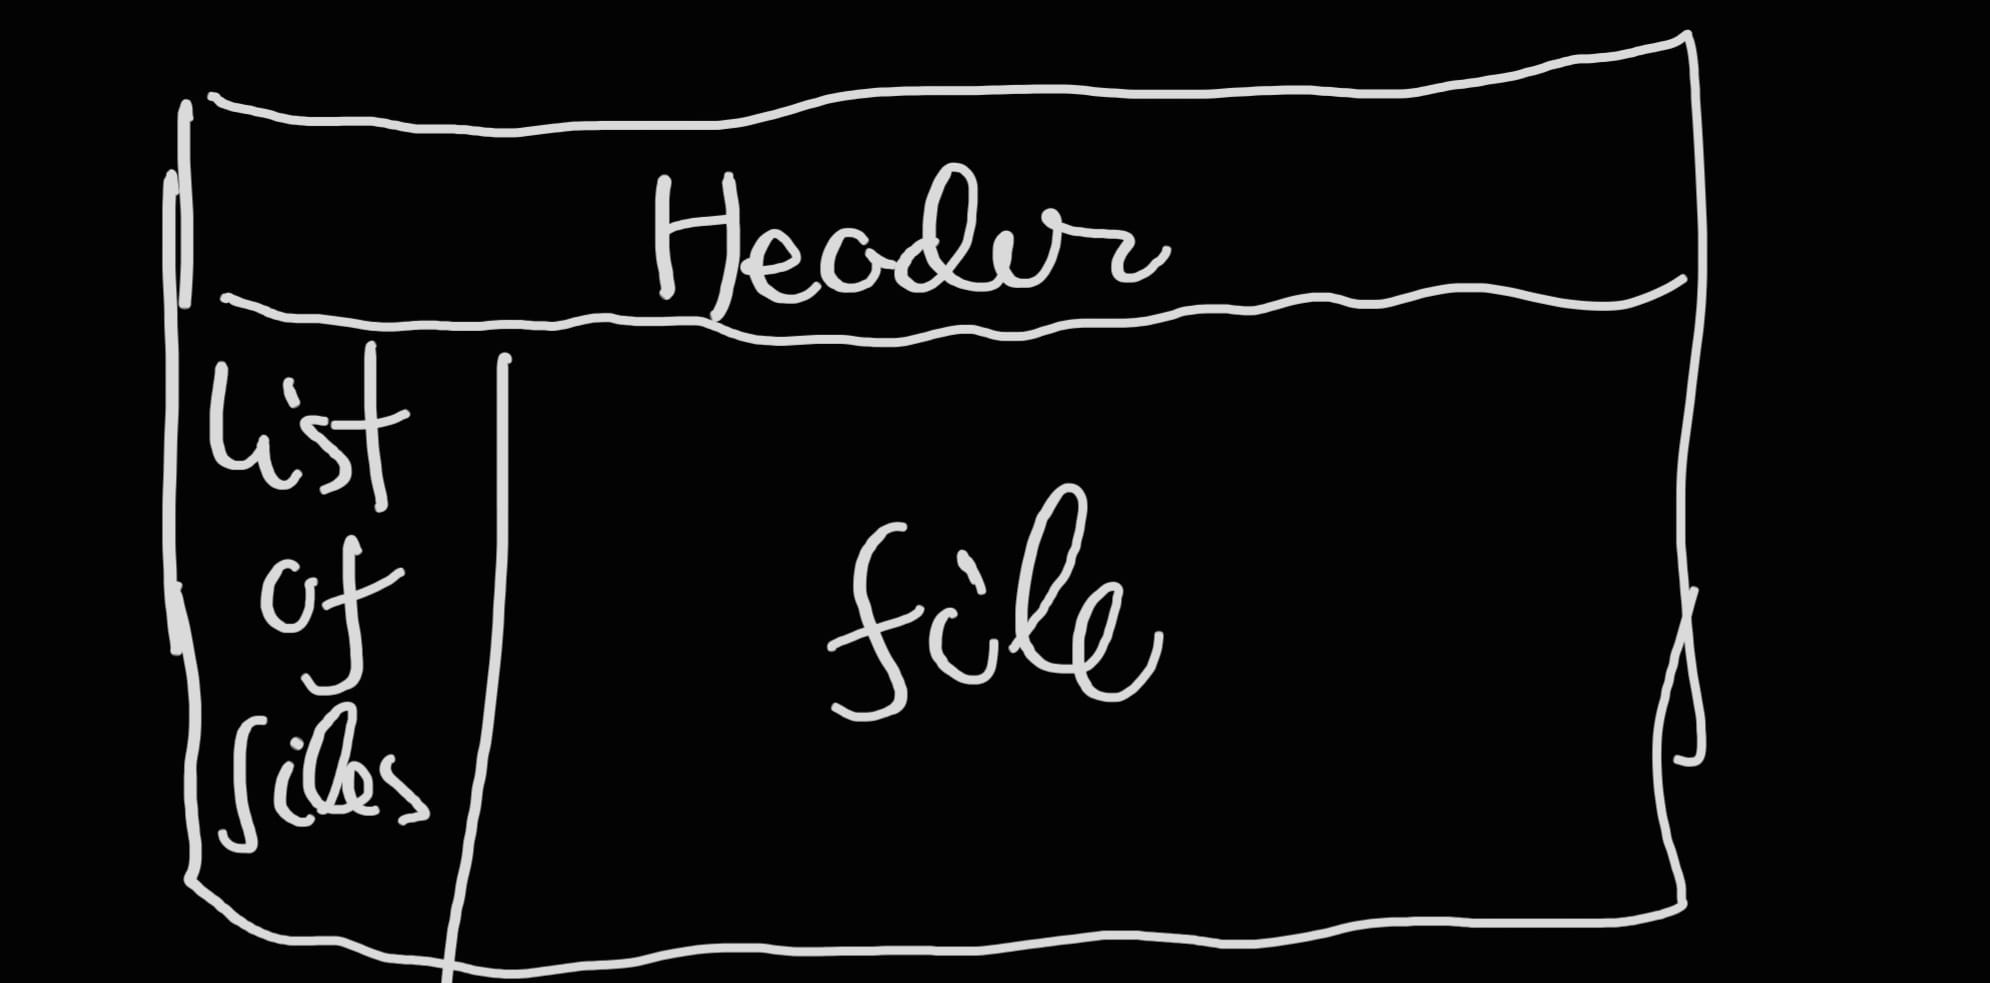 Header
list
of
files
file